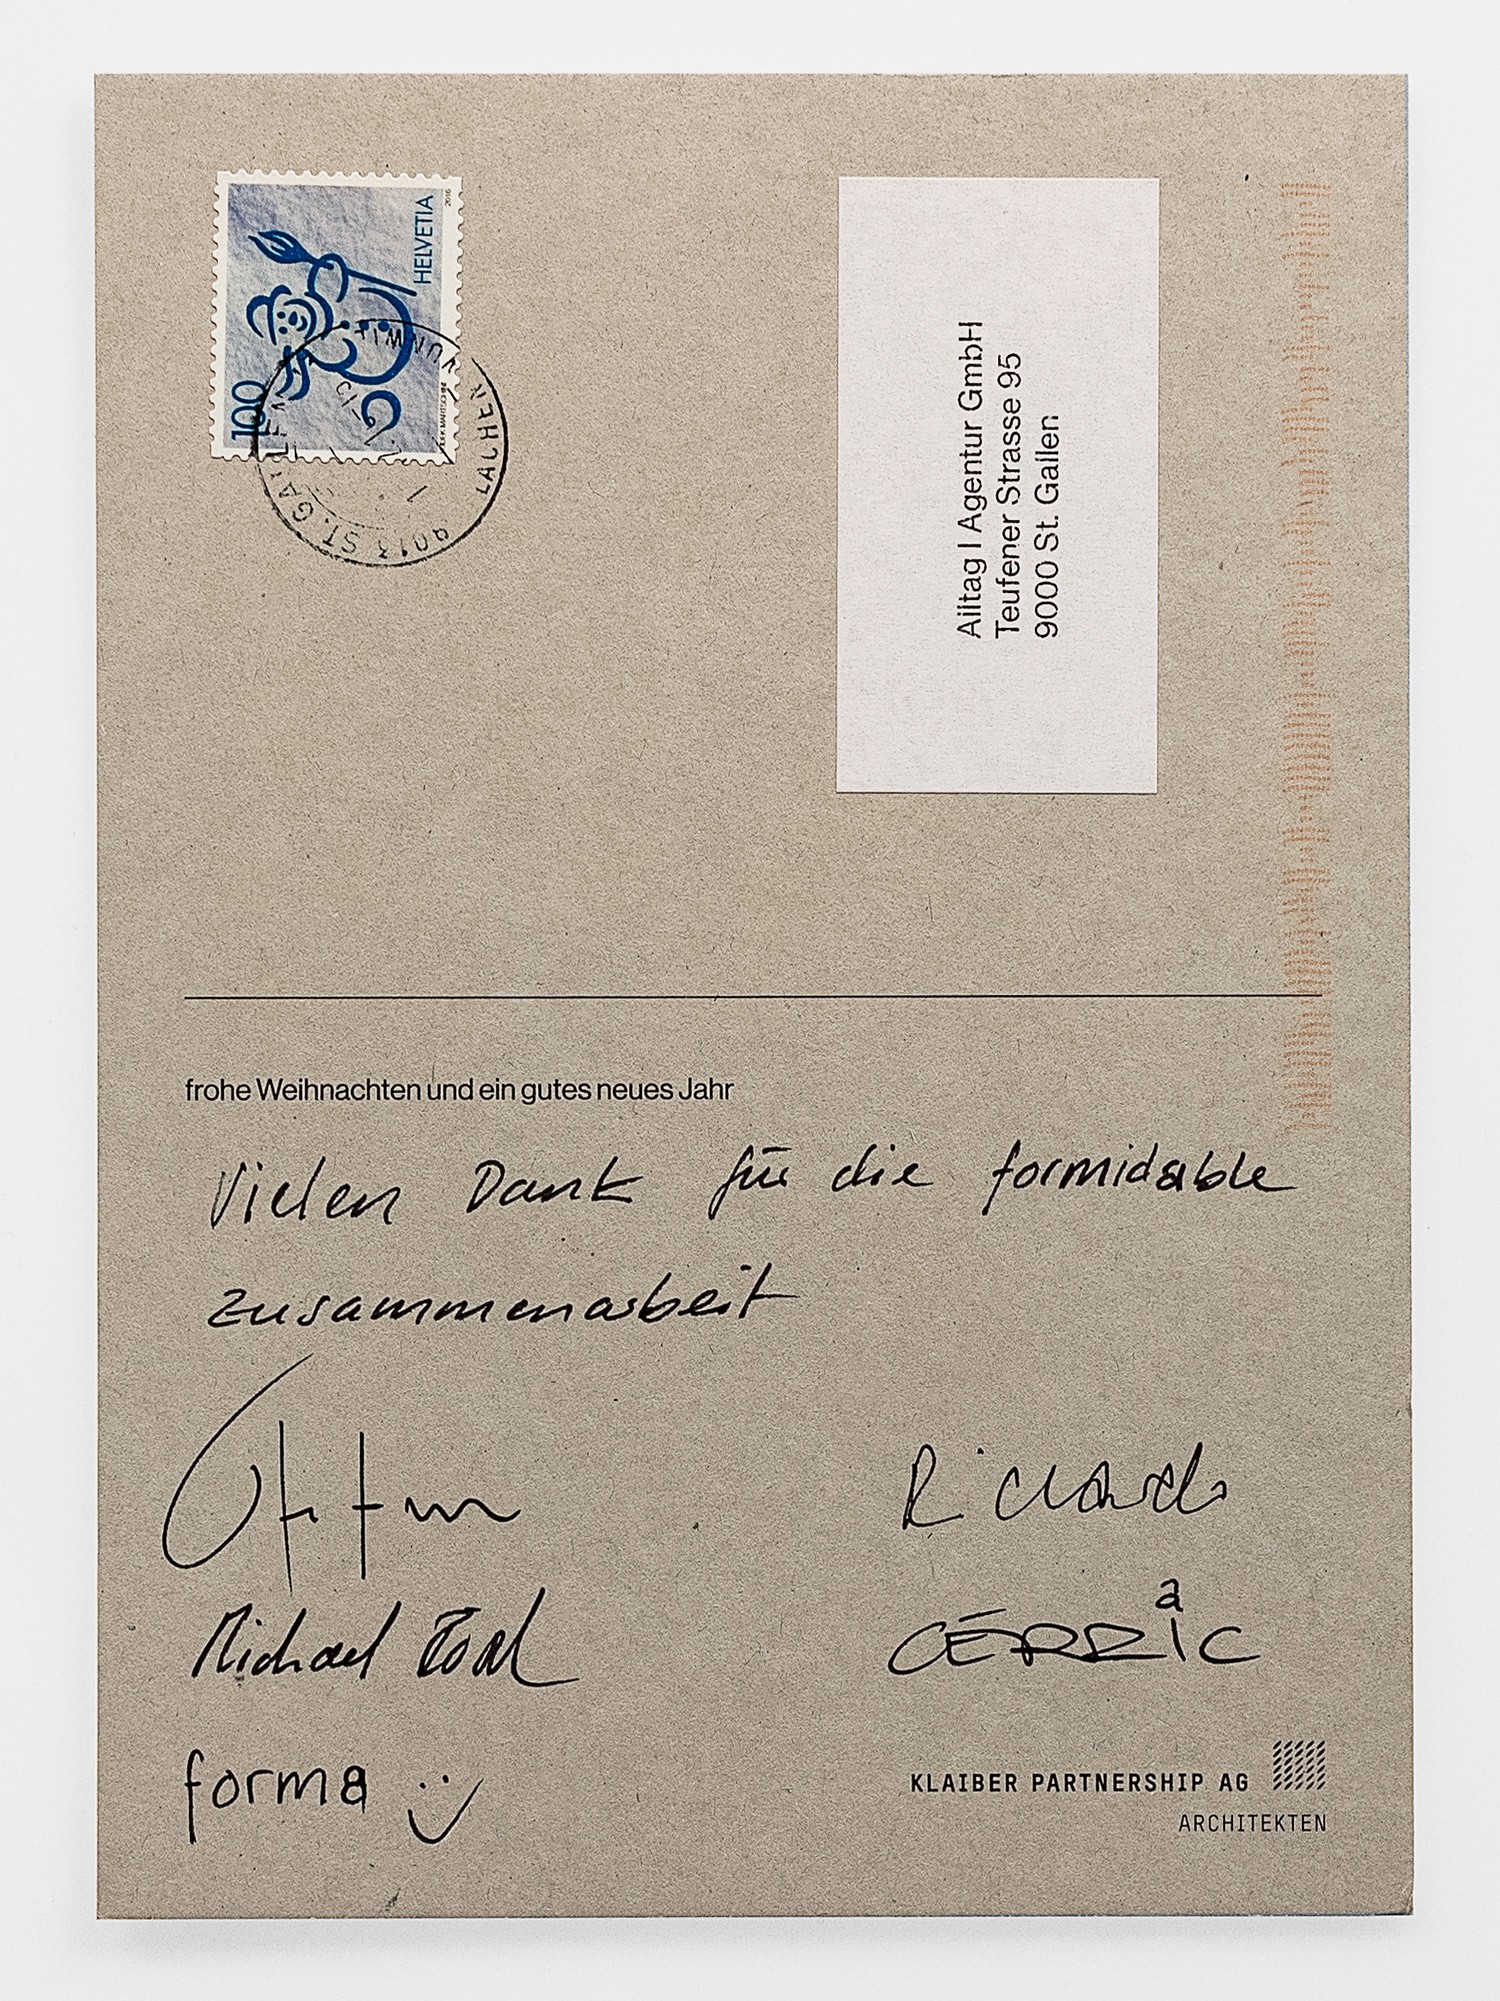 HELVETIA
2016
100
9013 ST. GALLEN
LACHEN
Alltag | Agentur GmbH
Teufener Strasse 95
9000 St. Gallen
frohe Weihnachten und ein gutes neues Jahr
Vielen Dank für die formidable
zusammenarbeit
Michael
forma :)
KLAIBER PARTNERSHIP AG
ARCHITEKTEN